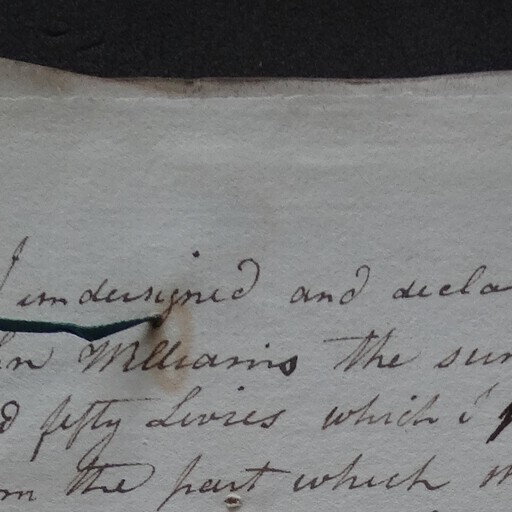 I undersigned and decla
hn Williams the sum
d fifty Livres which I
om the part which